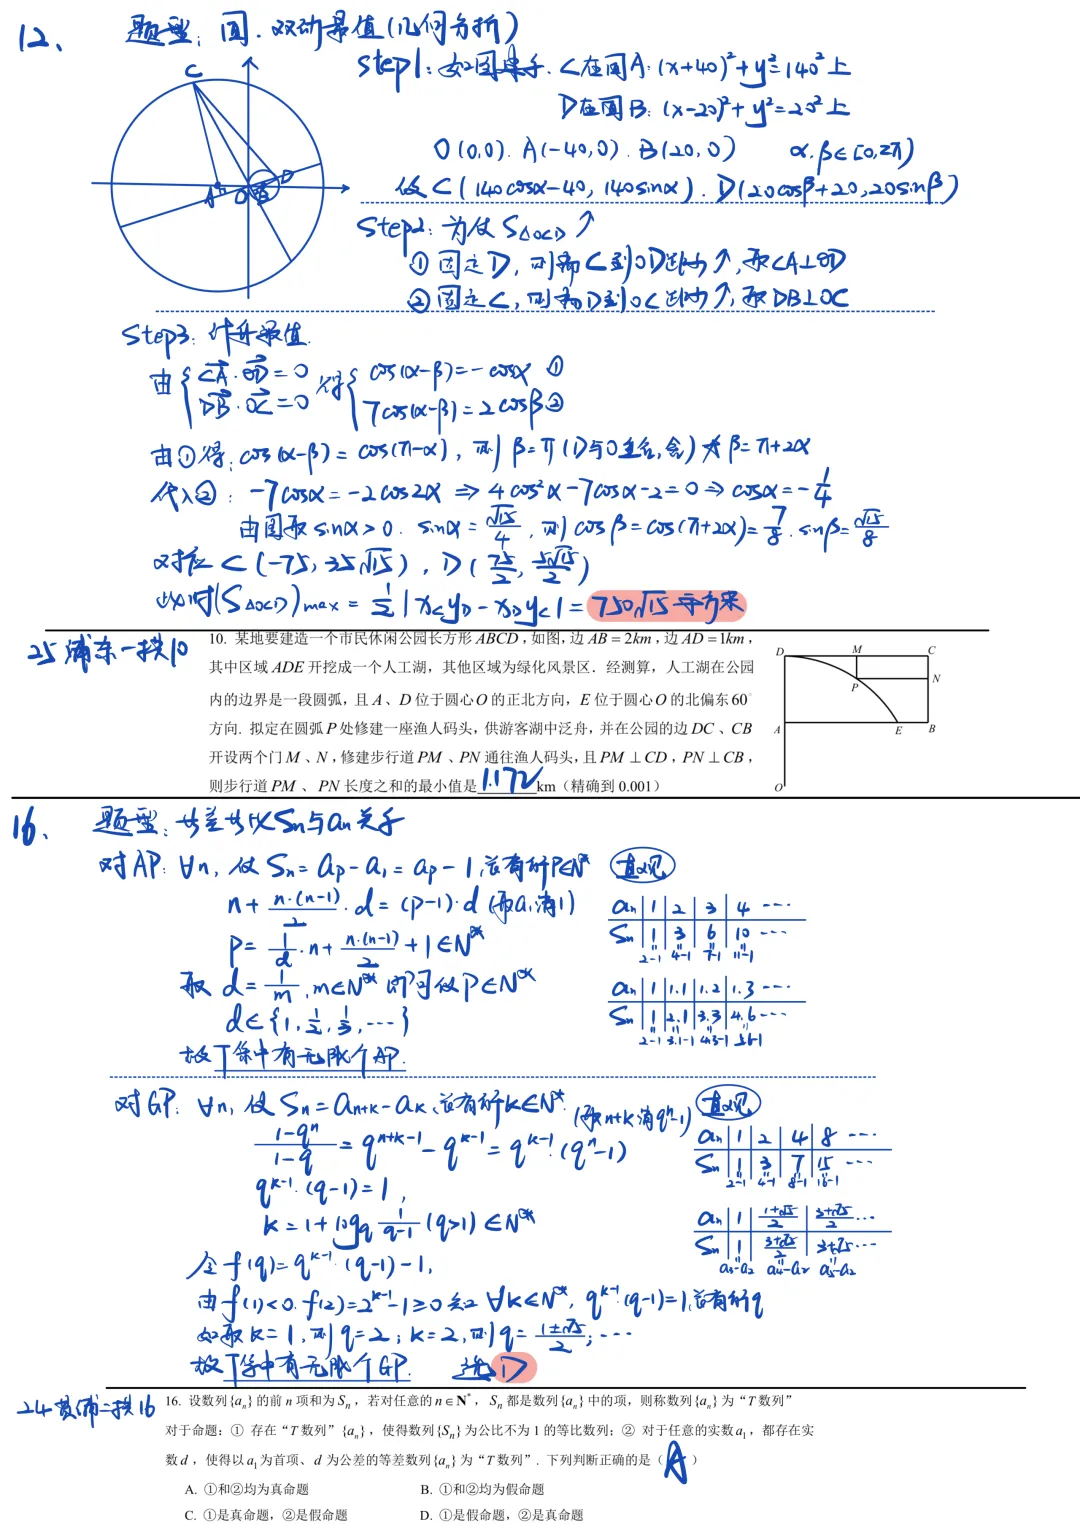 12、 题型：圆．双动最值（几何分析）
C
A O B D
Step1：如图. C在圆A：(x+40)²+y²=140²上
D在圆B：(x-20)²+y²=20²上
O(0,0). A(-40,0). B(20,0) α.β∈[0,2π)
设C(140cosα-40, 140sinα). D(20cosβ+20, 20sinβ)
Step2：为使S△OCD↑
①固定D，则需C到OD距离↑，取CA⊥OD
②固定C，则需D到OC距离↑，取DB⊥OC
Step3：计算最值.
由{CA·OD=0 得{cos(α-β)=-cosα ①
DB·OC=0 7cos(α-β)=2cosβ ②
由①得：cos(α-β)=cos(π-α)，则β=π(D与O重合,舍)或β=π+2α
代入②：-7cosα=-2cos2α ⇒ 4cos²α-7cosα-2=0 ⇒ cosα=-1/4
由图取sinα>0. sinα=√15/4，则cosβ=cos(π+2α)=7/8. sinβ=√15/8
对应C(-75, 35√15), D(75/2, 5√15/2)
此时(S△OCD)max=1/2|xCyD-xDyC|=750√15平方米
25浦东一模10
10. 某地要建造一个市民休闲公园长方形ABCD，如图，边AB=2km，边AD=1km，
其中区域ADE开挖成一个人工湖，其他区域为绿化风景区．经测算，人工湖在公园
内的边界是一段圆弧，且A、D位于圆心O的正北方向，E位于圆心O的北偏东60°
方向. 拟定在圆弧P处修建一座渔人码头，供游客湖中泛舟，并在公园的边DC、CB
开设两个门M、N，修建步行道PM、PN通往渔人码头，且PM⊥CD，PN⊥CB，
则步行道PM、PN长度之和的最小值是1.172km（精确到0.001）
D M C
P N
A E B
O
16、 题型：等差等比Sn与an关系
对AP：∀n，使Sn=ap-a1=ap-1，总有解p∈N* 直观
n+n·(n-1)/2·d=(p-1)·d (取a1消1)
p=1/d·n+n·(n-1)/2+1∈N*
取d=1/m, m∈N*即可使p∈N*
d∈{1, 1/2, 1/3, ...}
故T条中有无限个AP.
an 1 2 3 4 ...
Sn 1 3 6 10 ...
2-1 4-1 7-1 11-1
an 1 1.1 1.2 1.3 ...
Sn 1 2.1 3.3 4.6 ...
2-1 3.1-1 4.3-1 5.6-1
对GP：∀n，使Sn=an+k-ak，总有解k∈N*. (取n+k消qⁿ-1) 直观
1-qⁿ/1-q=qⁿ⁺ᵏ⁻¹-qᵏ⁻¹=qᵏ⁻¹·(qⁿ-1)
qᵏ⁻¹·(q-1)=1,
k=1+logq 1/(q-1) (q>1)∈N*
令f(q)=qᵏ⁻¹·(q-1)-1,
由f(1)<0. f(2)=2ᵏ⁻¹-1≥0知∀k∈N*, qᵏ⁻¹·(q-1)=1总有解q
如取k=1，则q=2；k=2，则q=1±√5/2；...
故T条中有无限个GP. 选D
an 1 2 4 8 ...
Sn 1 3 7 15 ...
2-1 4-1 8-1 16-1
an 1 1+√5/2 3+√5/2 ...
Sn 1 3+√5/2 3+√5 ...
a3-a2 a4-a2 a5-a2
24黄浦二模16
16. 设数列{an}的前n项和为Sn，若对任意的n∈N*，Sn都是数列{an}中的项，则称数列{an}为“T数列”
对于命题：① 存在“T数列”{an}，使得数列{Sn}为公比不为1的等比数列；② 对于任意的实数a1，都存在实
数d，使得以a1为首项、d为公差的等差数列{an}为“T数列”．下列判断正确的是（A）
A. ①和②均为真命题 B. ①和②均为假命题
C. ①是真命题，②是假命题 D. ①是假命题，②是真命题